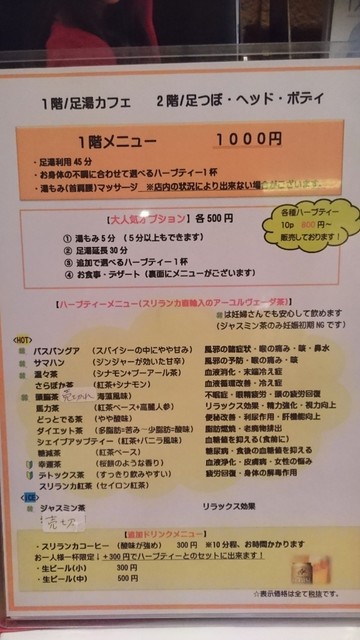 1階/足湯カフェ　2階/足つぼ・ヘッド・ボディ
1階メニュー　1000円
・足湯利用45分
・お身体の不調に合わせて選べるハーブティー1杯
・湯もみ(首肩腰)マッサージ　※店内の状況により出来ない場合がございます。
【大人気オプション】各500円
① 湯もみ5分　(5分以上もできます)
② 足湯延長30分
③ 追加で選べるハーブティー1杯
④ お食事・デザート　(裏面にメニューがございます)
各種ハーブティー
10p　円～
販売しております!
【ハーブティーメニュー(スリランカ直輸入のアーユルヴェーダ茶)】
は妊婦さんでも安心して飲めます
(ジャスミン茶のみ妊娠初期NGです)
HOT
パスパングア　(スパイシーの中にやや甘み)　風邪の諸症状・喉の痛み・咳・鼻水
サマハン　(ジンジャーが効いた甘辛)　風邪の予防・喉の痛み・咳
温々茶　(シナモン+プーアール茶)　血液浄化・末端冷え症
さらぽか茶　(紅茶+シナモン)　血液循環改善・冷え症
頭脳茶　売り切れ　(海藻風味)　不眠症・眼精疲労・頭の疲労回復
馬力茶　(紅茶ベース+高麗人参)　リラックス効果・精力強化・視力向上
どっとでる茶　(やや酸味)　便秘改善・利尿作用・肝機能向上
ダイエット茶　(多脂肪=苦み 少脂肪=酸味)　脂肪燃焼・老廃物排出
シェイプアップティー　(紅茶+バニラ風味)　血糖値を抑える(食前に)
糖減茶　(紅茶ベース)　糖尿病・食後の血糖値を抑える
幸運茶　(桜餅のような香り)　血液浄化・皮膚病・女性の悩み
デトックス茶　(すっきり飲みやすい)　疲労回復・身体の解毒作用
スリランカ紅茶　(セイロン紅茶)
ICE
ジャスミン茶　リラックス効果
売切
【追加ドリンクメニュー】
・スリランカコーヒー　(酸味が強め)　300円　※10分程、お時間かかります
お一人様一杯限定↓+300円でハーブティーとのセットに出来ます!
・生ビール(小)　300円
・生ビール(中)　500円
☆表示価格は全て税抜です。